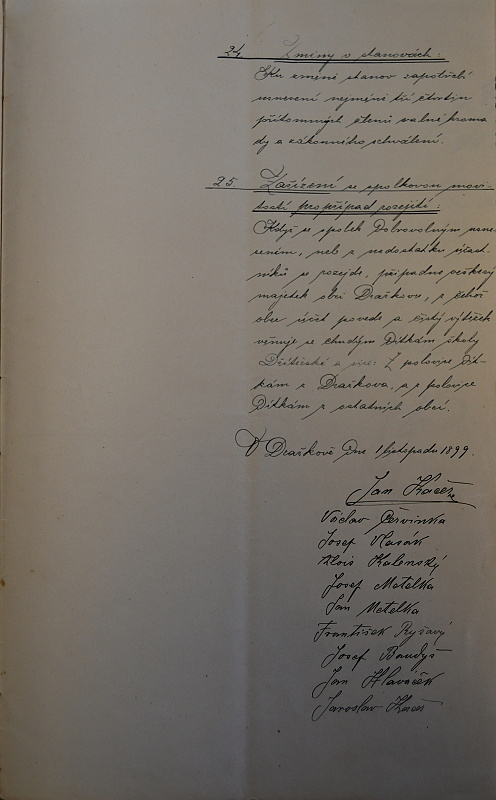 24. Změny v stanovách:
Ku změně stanov zapotřebí
usnesení nejméně tří čtvrtin
přítomných členů valné hroma
dy a zákonního schválení.
25. Zařízení se spolkovou movi
tostí pro případ rozejití:
Když se spolek dobrovolným usne
sením, neb z nedostatku účast
níků se rozejde, připadne veškerý
majetek obci Draškov, z čehož
obec účet povede a čistý výtěžek
věnuje se chudým dítkám školy
a sice: Z polovice dít-
kám z Draškova, a z polovice
dítkám z ostatních obcí.
V Draškově dne 1 listopadu 1899.
Jan
Václav Červinka
Josef Vlasák
Alois Kalenský
Josef Metelka
Jan Metelka
František Ryšavý
Josef Baudyš
Jan Hlaváček
Jaroslav